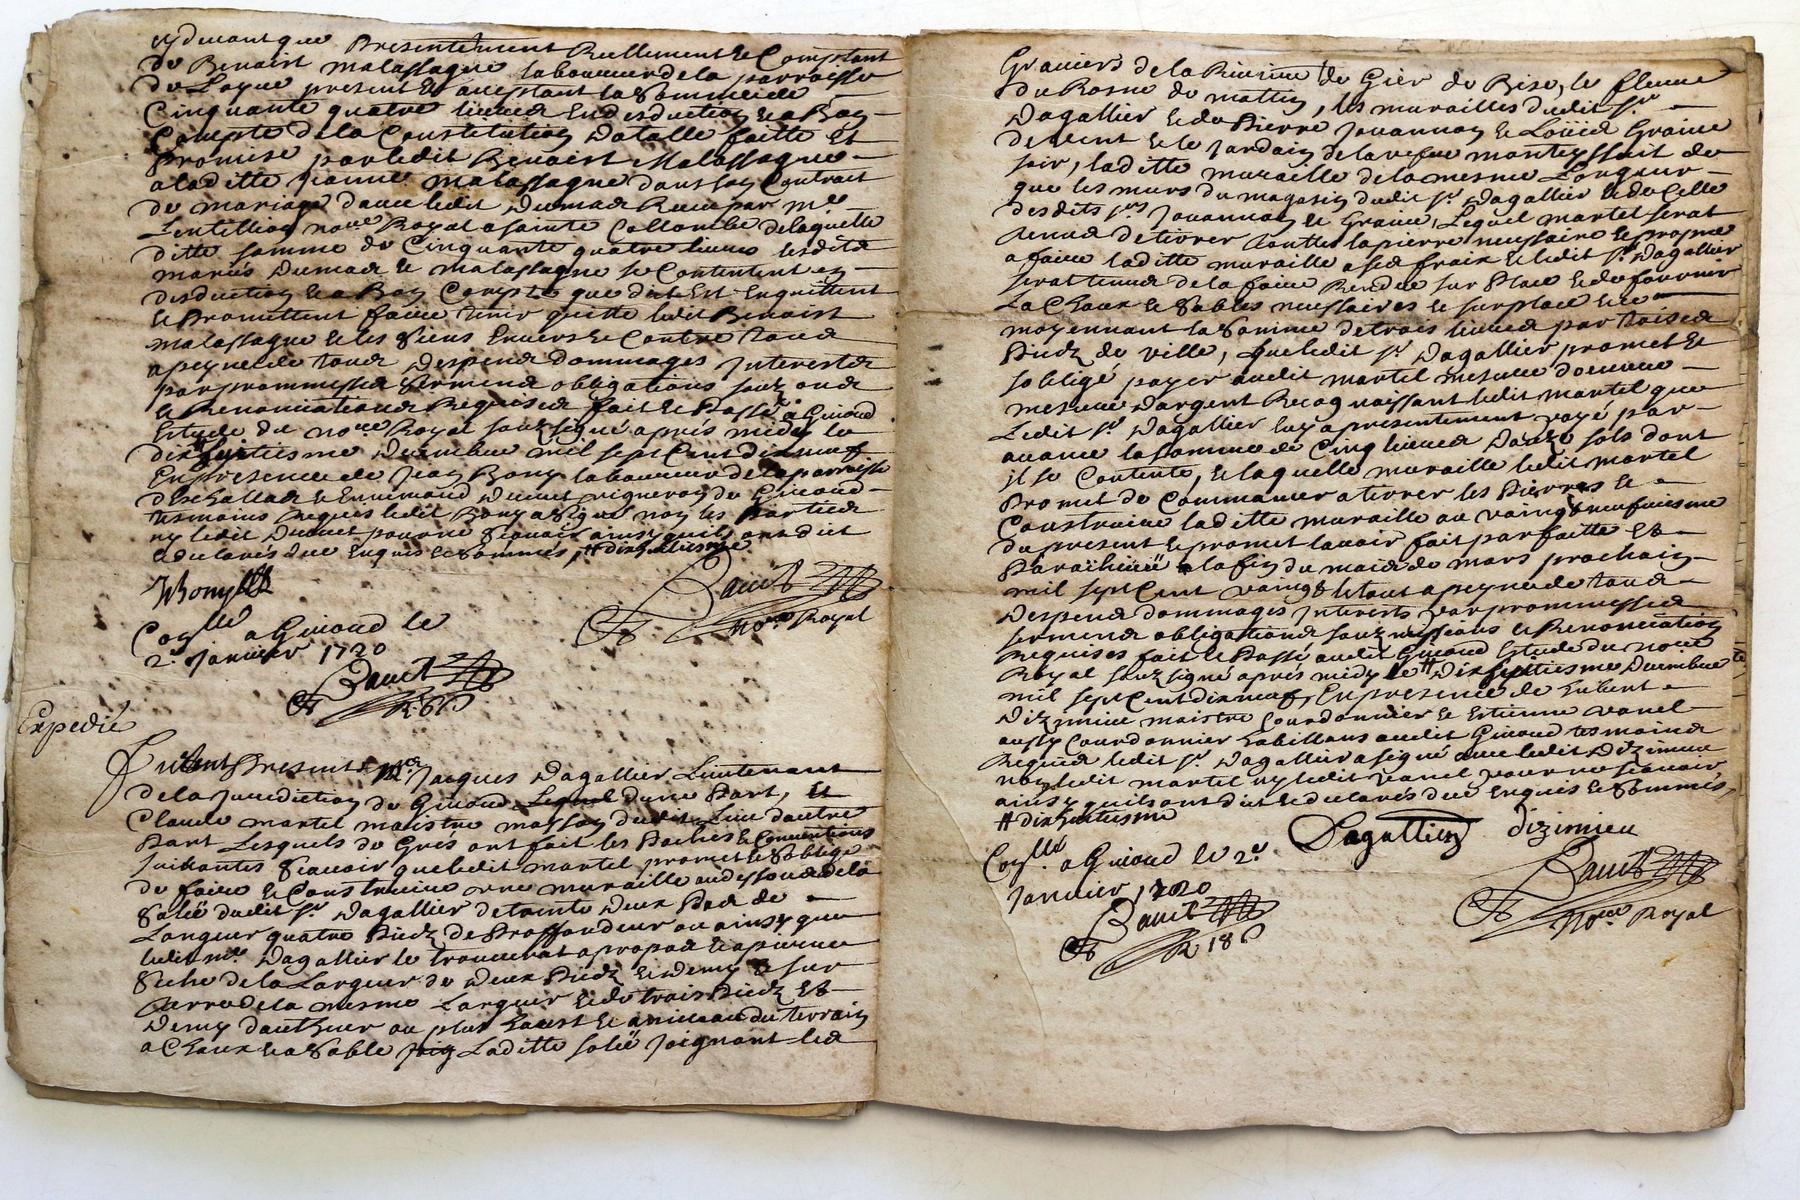 presentement Reellement & Comptant
de Benoist malassagne laboureur de la parroisse
de Loyne present & acceptant la Somme de
Cinquante quatre livres En desduction & a Bon
Compte de la Constitution Dotalle faitte Et
promise par ledit Benoist Malassagne
a laditte Jeanne malassagne dans son Contrait
de mariage d'avec ledit Dumas Receu par Me
Lentillion nore Royal a sainte Collombe de laquelle
ditte somme de Cinquante quatre livres lesdits
mariés Dumas & malassagne se Contentent en
desduction & a Bon Compte que dit Est Enquittent
& Promettent faire tenir quitte ledit Benoist
malassagne & les Siens Envers & Contre tous
a peyne de tous despens dommages Interests
par prommesses serments obligations
& Renonciations Requises fait & Passé a Givord
Estude du nore Royal soubzsigné apres midy le
decembre mil sept Cent dix neuf
En presence de Jean Bony laboureur de la parroisse
d'Eschallas & Ennemond vigneron de Givord
tesmoins Requis ledit Bony a signé non les Parties
ny ledit pour ne sçavoir ainsy qu'ils ont dit
& declarés de ce Enquis & Sommés, # dixhuitiesme
JBony
Baud
nore Royal
Conllé a Givord le
2e Janvier 1720
Baud
Expedié
Furent Presents Me Jacques Dagallier Lieutenant
de la Jurediction de Givord d'une Part, Et
Claude martel maistre masson dudit Lieu d'autre
Part Lesquels de Grés ont fait les Paches & Conventions
suivantes sçavoir que ledit martel promet & s'oblige
de faire & Construire une muraille au dessous de la
dudit sr Dagallier de trente deux Pas de
Longeur quatre Piedz de Proffondeur ou ainsy que
ledit Me Dagallier le trouverat a propos & a pierre
Seche de la Largeur de deux Piedz & demy & sur
terre de la mesme Largeur & de trois Piedz Et
Demy d'autheur ou plus haust & a niveau du terrain
a Chaux & a Sable Laditte joignant les
Graviers de la Riviere de Gier de Bize, le fleuve
du Rosne de mattin, les murailles dudit sr
Dagallier & de Pierre Jouannon & Graine
de vent & le Jardain de la vefve de
soir, laditte muraille de la mesme Longeur
que les murs du magasin dudit sr Dagallier & de Celle
desdits srs Jouannon & Graine, Lequel martel serat
tenus de tirrer touttes la pierre nessaire & propre
a faire laditte muraille a ses frais & ledit sr Dagallier
serat tenus de la faire Rendre sur Place & de fournir
La Chaux & Sables nessaires & sur place & ce
moyennant la Somme de trois livres par toises
Piedz de ville, que ledit sr Dagallier promet &
s'obligé payer audit martel mesure d'œuvre
mesure d'argent Recognoissant ledit martel que
Ledit sr Dagallier luy a presentement payé par
avance la somme de Cinq livres douze sols dont
il se Contente, & laquelle muraille ledit martel
Promet de Commancer a tirrer les Pierres &
Construire laditte muraille au vaingt neufviesme
du present & promet l'avoir fait parfaitte &
a la fin du mois de mars prochain
mil sept Cent vaingt le tout a peyne de tous
despens dommages Interests par prommesses
serments obligations soubzmissions & Renonciation
Requises fait & Passé audit Givord Estude du nore
Royal soubzsigné apres midy le # Dixseptiesme Decembre
mil sept Cent dix neuf, En presence de
Dizimieu maistre Courdonnier & Estienne vanel
aussy Courdonnier habittans audit Givord tesmoins
Requis ledit sr Dagallier a signé avec ledit Dizimieu
non ledit martel ny ledit vanel pour ne sçavoir
ainsy qu'ils ont dit & declarés de ce Enquis & Sommés,
# dixhuitiesme
Dagallier Dizimieu
Conllé a Givord le 2e
Janvier 1720
Baud
R 18s
Baud
nore Royal